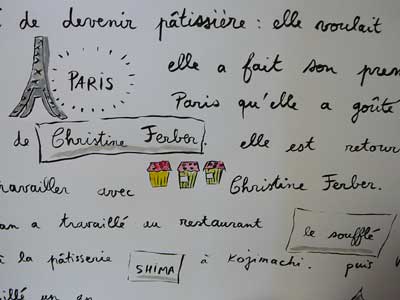 de devenir pâtissière : elle voulait
PARIS
elle a fait son
Paris qu'elle a goûté
de Christine Ferber. elle est
travailler avec Christine Ferber.
a travaillé au restaurant le soufflé
la pâtisserie SHIMA à Kojimachi. puis
un an